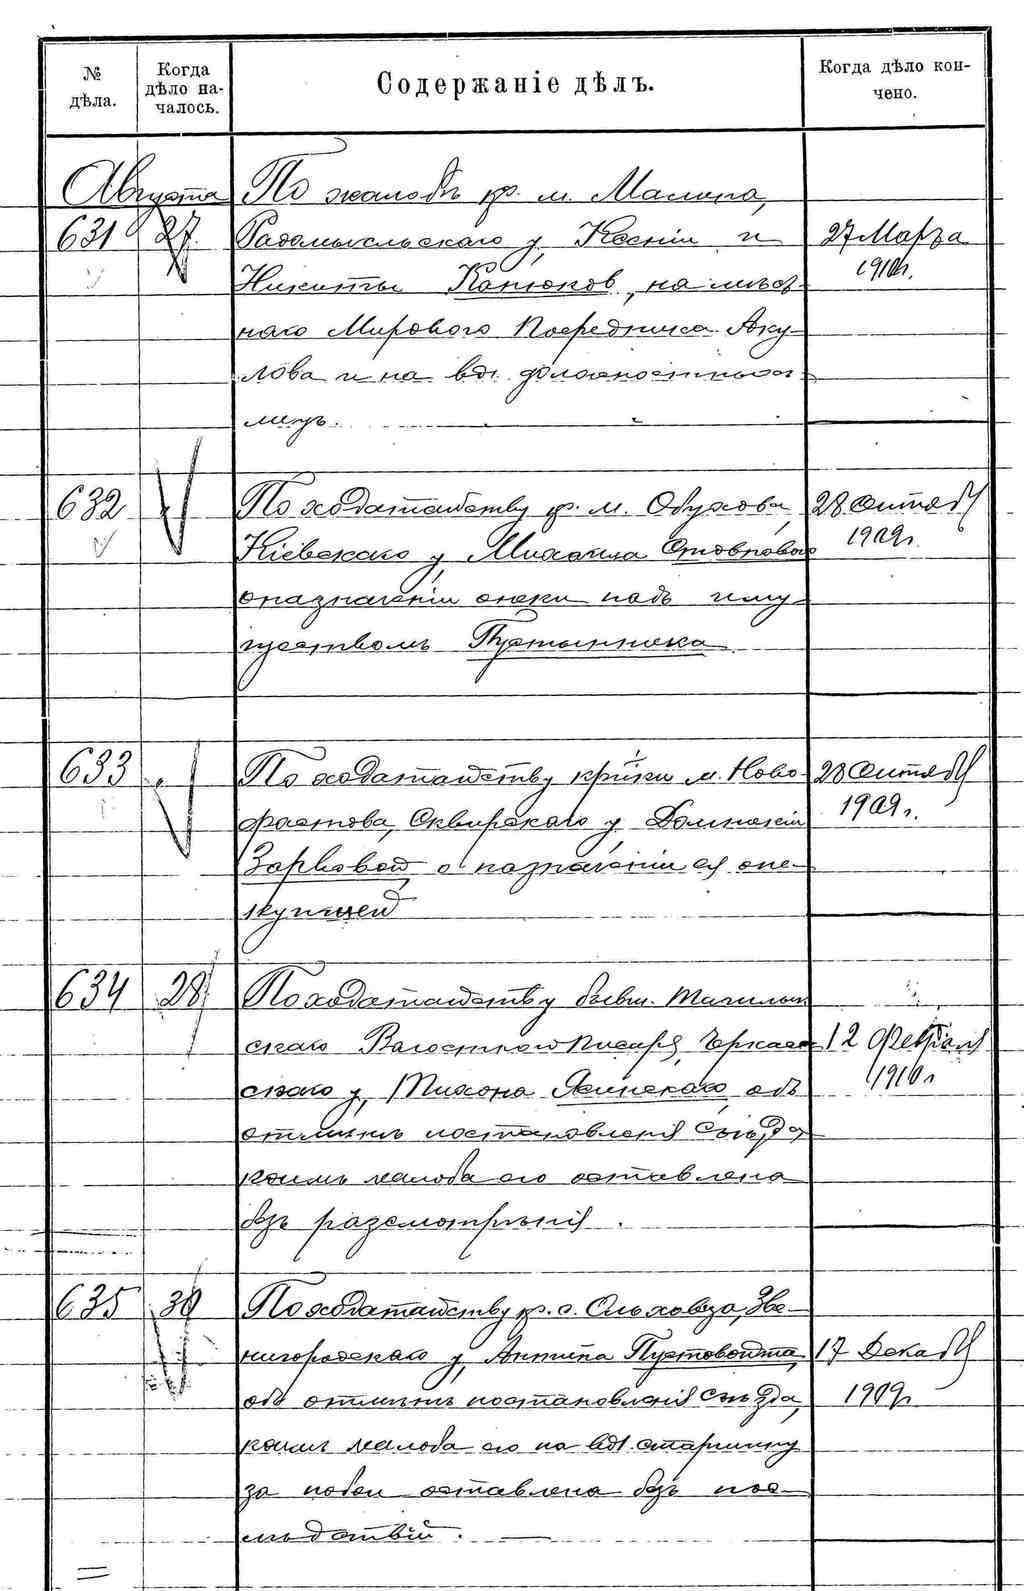 № дѣла.
Когда дѣло началось.
Содержаніе дѣлъ.
Когда дѣло кончено.
Августа
631 27
По жалобѣ кр. м. Малина,
Радомысльскаго у, Ксеніи и
Никиты Канюков, на мѣст-
наго Мирового Посредника Аку-
лова и на вол. должностныхъ
лицъ.
27 Марта
1910 г.
632
По ходатайству кр. м. Обухова,
Кіевскаго у, Михаила
о назначеніи опеки надъ иму-
ществомъ Пустынника
28 Октяб
1909 г.
633
По ходатайству кр-ки м. Ново-
фастова, Сквирскаго у,
о назначеніи ея опе-
куншей
28 Октяб
1909 г.
634 28
По ходатайству бывш.
скаго Волостного Писаря, Черкас-
скаго у, Тихона Ясинскаго, объ
отмѣнѣ постановленія Съѣзда,
коимъ жалоба его оставлена
безъ разсмотрѣнія.
12 Февраля
1910 г
635 30
По ходатайству кр. с. Ольховца, Зве-
нигородскаго у, Антипа Пустовойта,
объ отмѣнѣ постановленія Съѣзда,
коимъ жалоба его на вол. старшину
за побои оставлена безъ пос-
лѣдствій.
17 Декаб
1909 г